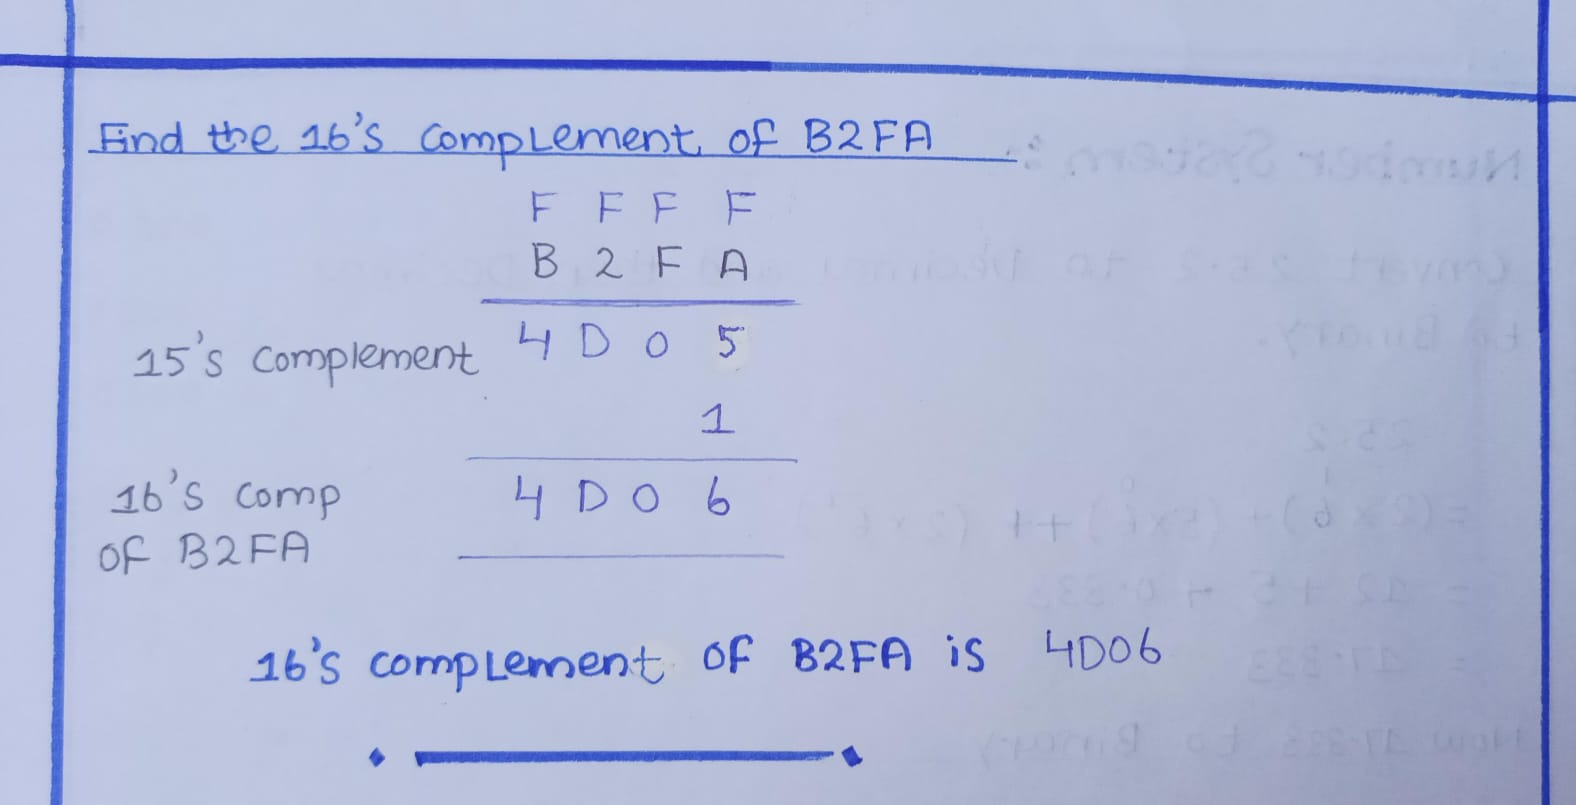 Find the 16's complement of B2FA
F F F F
B 2 F A
15's complement 4 D 0 5
1
16's comp 4 D 0 6
of B2FA
16's complement of B2FA is 4D06